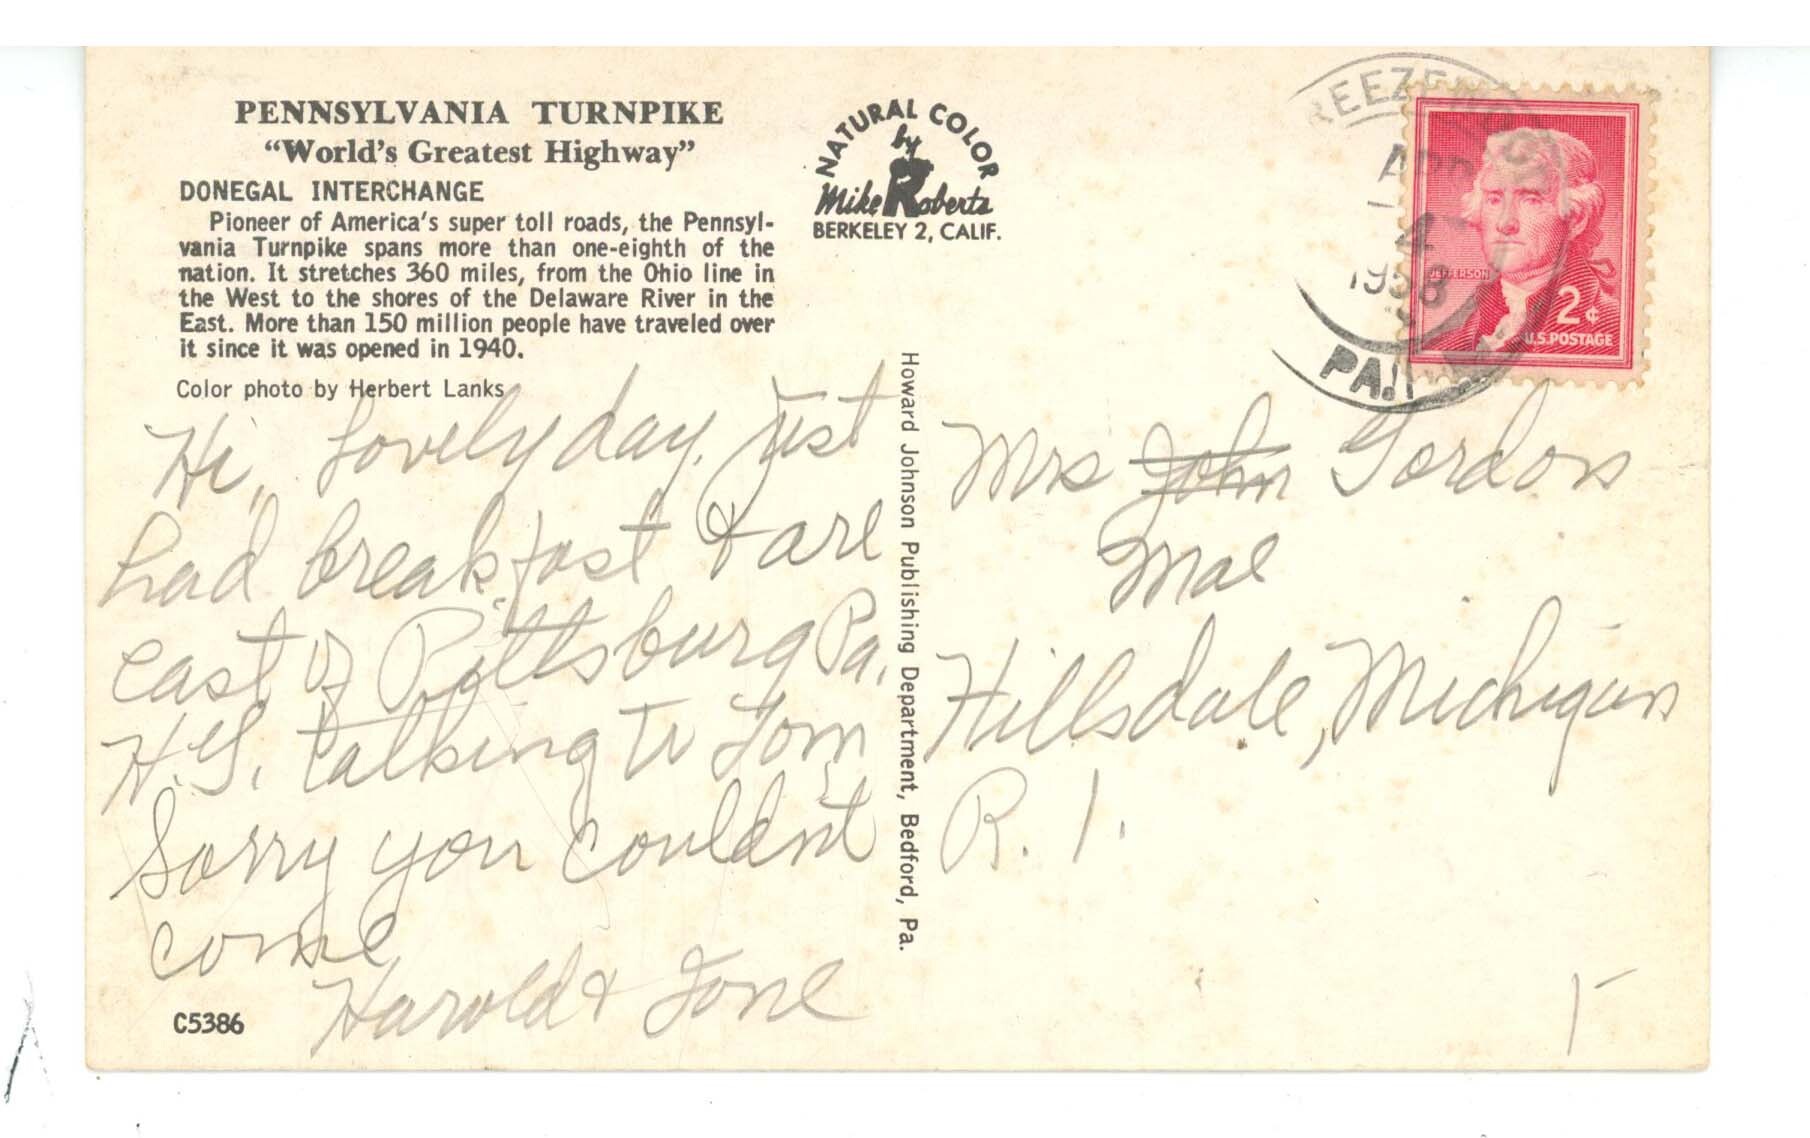 PENNSYLVANIA TURNPIKE
"World's Greatest Highway"
DONEGAL INTERCHANGE
Pioneer of America's super toll roads, the Pennsyl-
vania Turnpike spans more than one-eighth of the
nation. It stretches 360 miles, from the Ohio line in
the West to the shores of the Delaware River in the
East. More than 150 million people have traveled over
it since it was opened in 1940.
Color photo by Herbert Lanks
Hi, Lovely day. Just
had breakfast & are
east of Pittsburg Pa.
H.G. talking to Tom
Sorry you couldnt
come
Harold & Ione
C5386
NATURAL COLOR
by
Mike Roberts
BERKELEY 2, CALIF.
Howard Johnson Publishing Department, Bedford, Pa.
APR
4
1958
PA.
JEFFERSON
2¢
U.S. POSTAGE
Mrs John Gordon
Mae
Hillsdale, Michigan
R. 1.